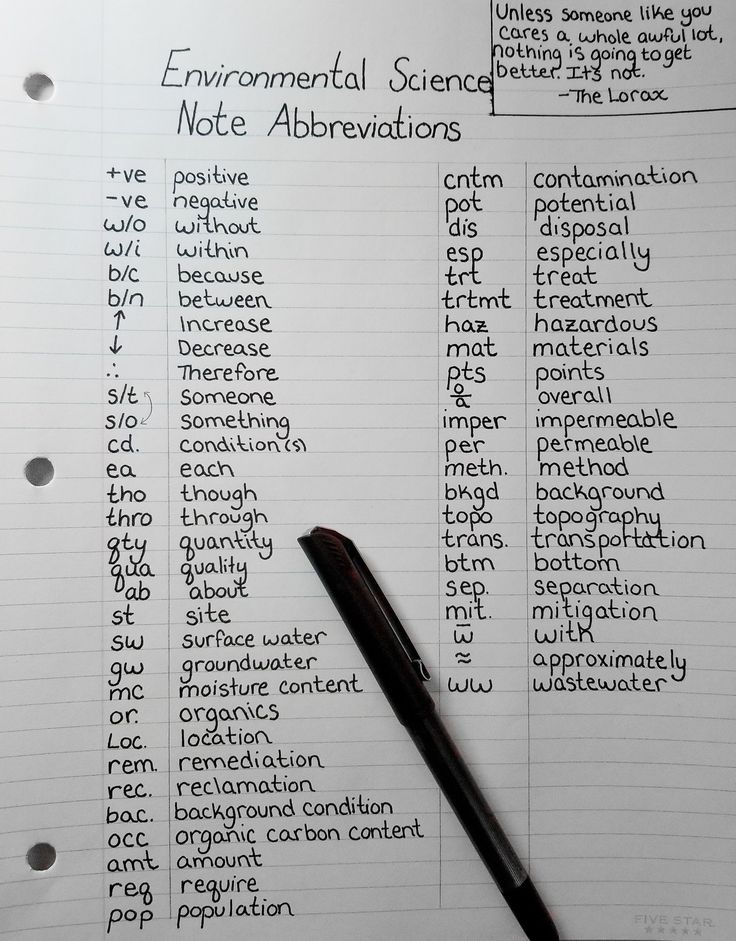 Unless someone like you
cares a whole awful lot,
nothing is going to get
better. It's not.
-The Lorax
Environmental Science
Note Abbreviations
+ve positive
-ve negative
w/o without
w/i within
b/c because
b/n between
↑ Increase
↓ Decrease
∴ Therefore
s/t someone
s/o something
cd. condition(s)
ea each
tho though
thro through
qty quantity
qua quality
ab about
st site
sw surface water
gw groundwater
mc moisture content
or. organics
Loc. location
rem. remediation
rec. reclamation
bac. background condition
occ organic carbon content
amt amount
req require
pop population
cntm contamination
pot potential
dis disposal
esp especially
trt treat
trtmt treatment
haz hazardous
mat materials
pts points
o/a overall
imper impermeable
per permeable
meth. method
bkgd background
topo topography
trans. transportation
btm bottom
sep. separation
mit. mitigation
w̅ with
≈ approximately
ww wastewater
FIVE STAR
★★★★★